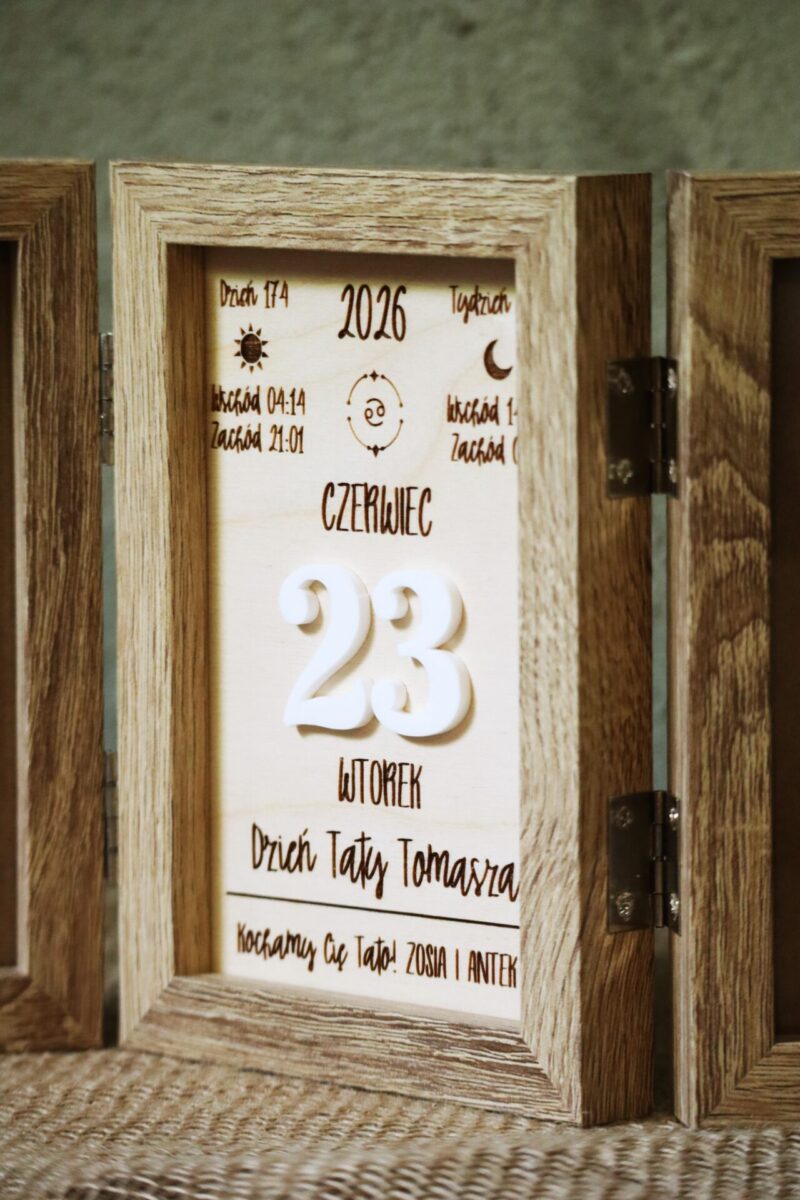 Dzień 174
2026
Tydzień
Wschód 04:14
Zachód 21:01
Wschód
Zachód
CZERWIEC
23
WTOREK
Dzień Taty Tomasza
Kochamy Cię Tato! ZOSIA I ANTEK